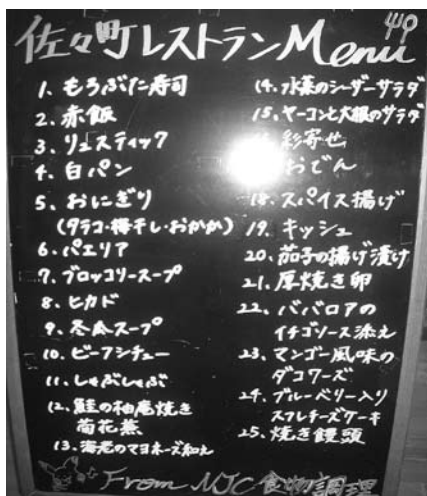 佐々町レストランMenu
1. もろぶた寿司
2. 赤飯
3. リュスティック
4. 白パン
5. おにぎり
(タラコ・梅干し・おかか)
6. パエリア
7. ブロッコリースープ
8. ヒカド
9. 冬瓜スープ
10. ビーフシチュー
11. しゃぶしゃぶ
12. 鮭の柚庵焼き
菊花蕪
13. 海老のマヨネーズ和え
14. 水菜のシーザーサラダ
15. ヤーコンと大根のサラダ
彩寄せ
おでん
18. スパイス揚げ
19. キッシュ
20. 茄子の揚げ漬け
21. 厚焼き卵
22. ババロアの
イチゴソース添え
23. マンゴー風味の
ダコワーズ
24. ブルーベリー入り
スフレチーズケーキ
25. 焼き饅頭
From NJC 食物調理